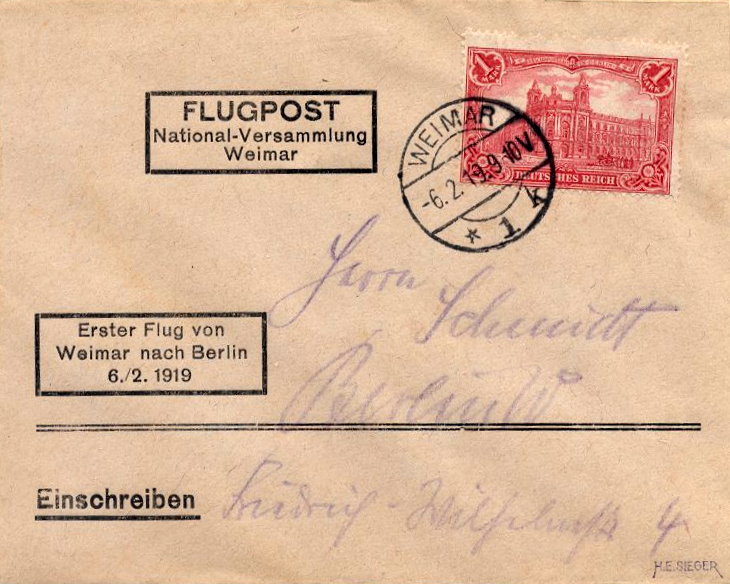 1 MARK 1 MARK
REICHSPOSTAMT IN BERLIN
DEUTSCHES REICH
FLUGPOST
National-Versammlung
Weimar
WEIMAR
-6.2.19.9-10V
* 1 k
Herrn
Schmidt
Erster Flug von
Weimar nach Berlin
6./2. 1919
Berlin W
Einschreiben
Friedrich-Wilhelmstr 4
H.E.SIEGER